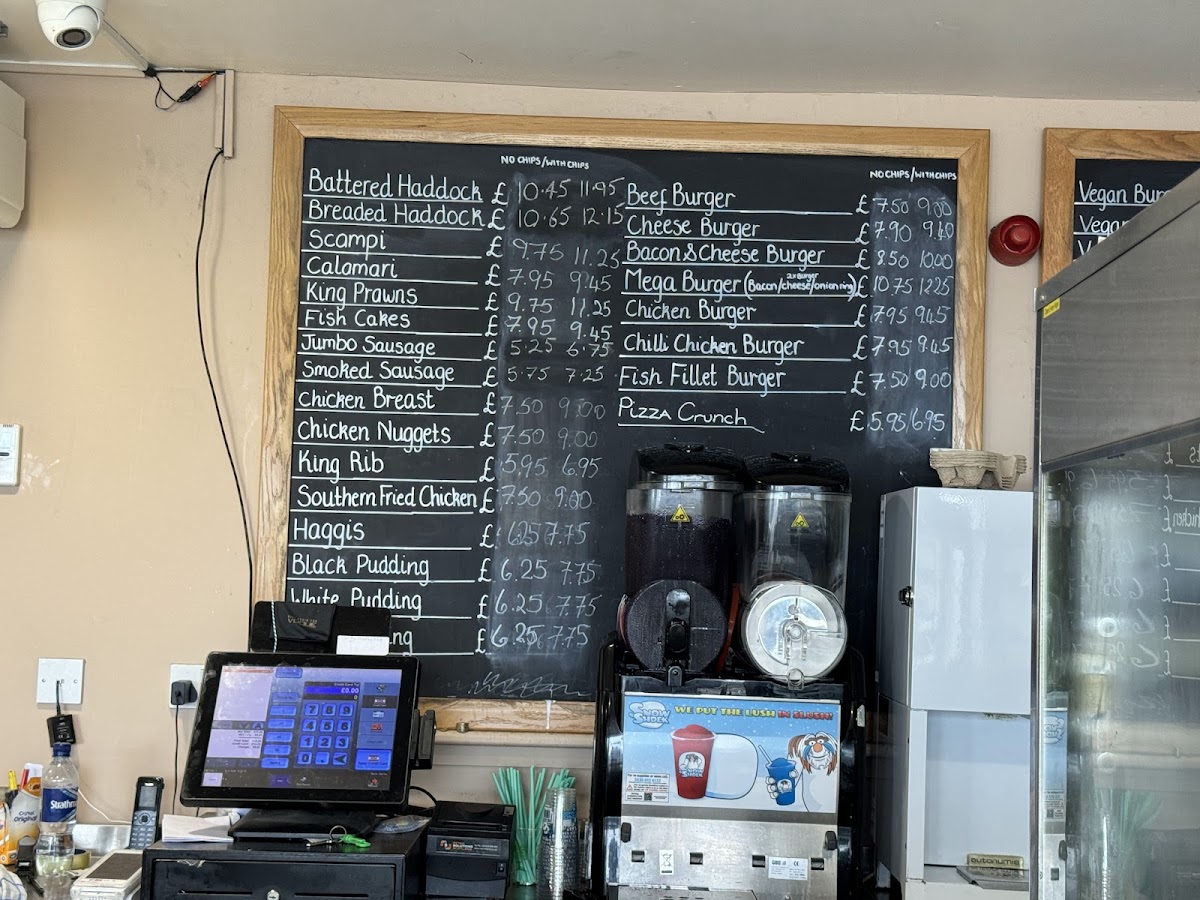 NO CHIPS/WITH CHIPS
Battered Haddock £ 10.45 11.95
Breaded Haddock £ 10.65 12.15
Scampi £ 9.75 11.25
Calamari £ 7.95 9.45
King Prawns £ 9.75 11.25
Fish Cakes £ 7.95 9.45
Jumbo Sausage £ 5.25 6.75
Smoked Sausage £ 5.75 7.25
Chicken Breast £ 7.50 9.00
Chicken Nuggets £ 7.50 9.00
King Rib £ 5.95 6.95
Southern Fried Chicken £ 7.50 9.00
Haggis £ 6.25 7.75
Black Pudding £ 6.25 7.75
White Pudding £ 6.25 7.75
£ 6.25 7.75
NO CHIPS/WITH CHIPS
Beef Burger £ 7.50 9.00
Cheese Burger £ 7.90 9.40
Bacon & Cheese Burger £ 8.50 10.00
Mega Burger (2x Burger Bacon/cheese/onion ring) £ 10.75 12.25
Chicken Burger £ 7.95 9.45
Chilli Chicken Burger £ 7.95 9.45
Fish Fillet Burger £ 7.50 9.00
Pizza Crunch £ 5.95/6.95
Vegan
Vegan
£0.00
7 8 9
4 5 6
1 2 3
SNOW SHOCK
WE PUT THE LUSH IN SLUSH!
Original
autonumis